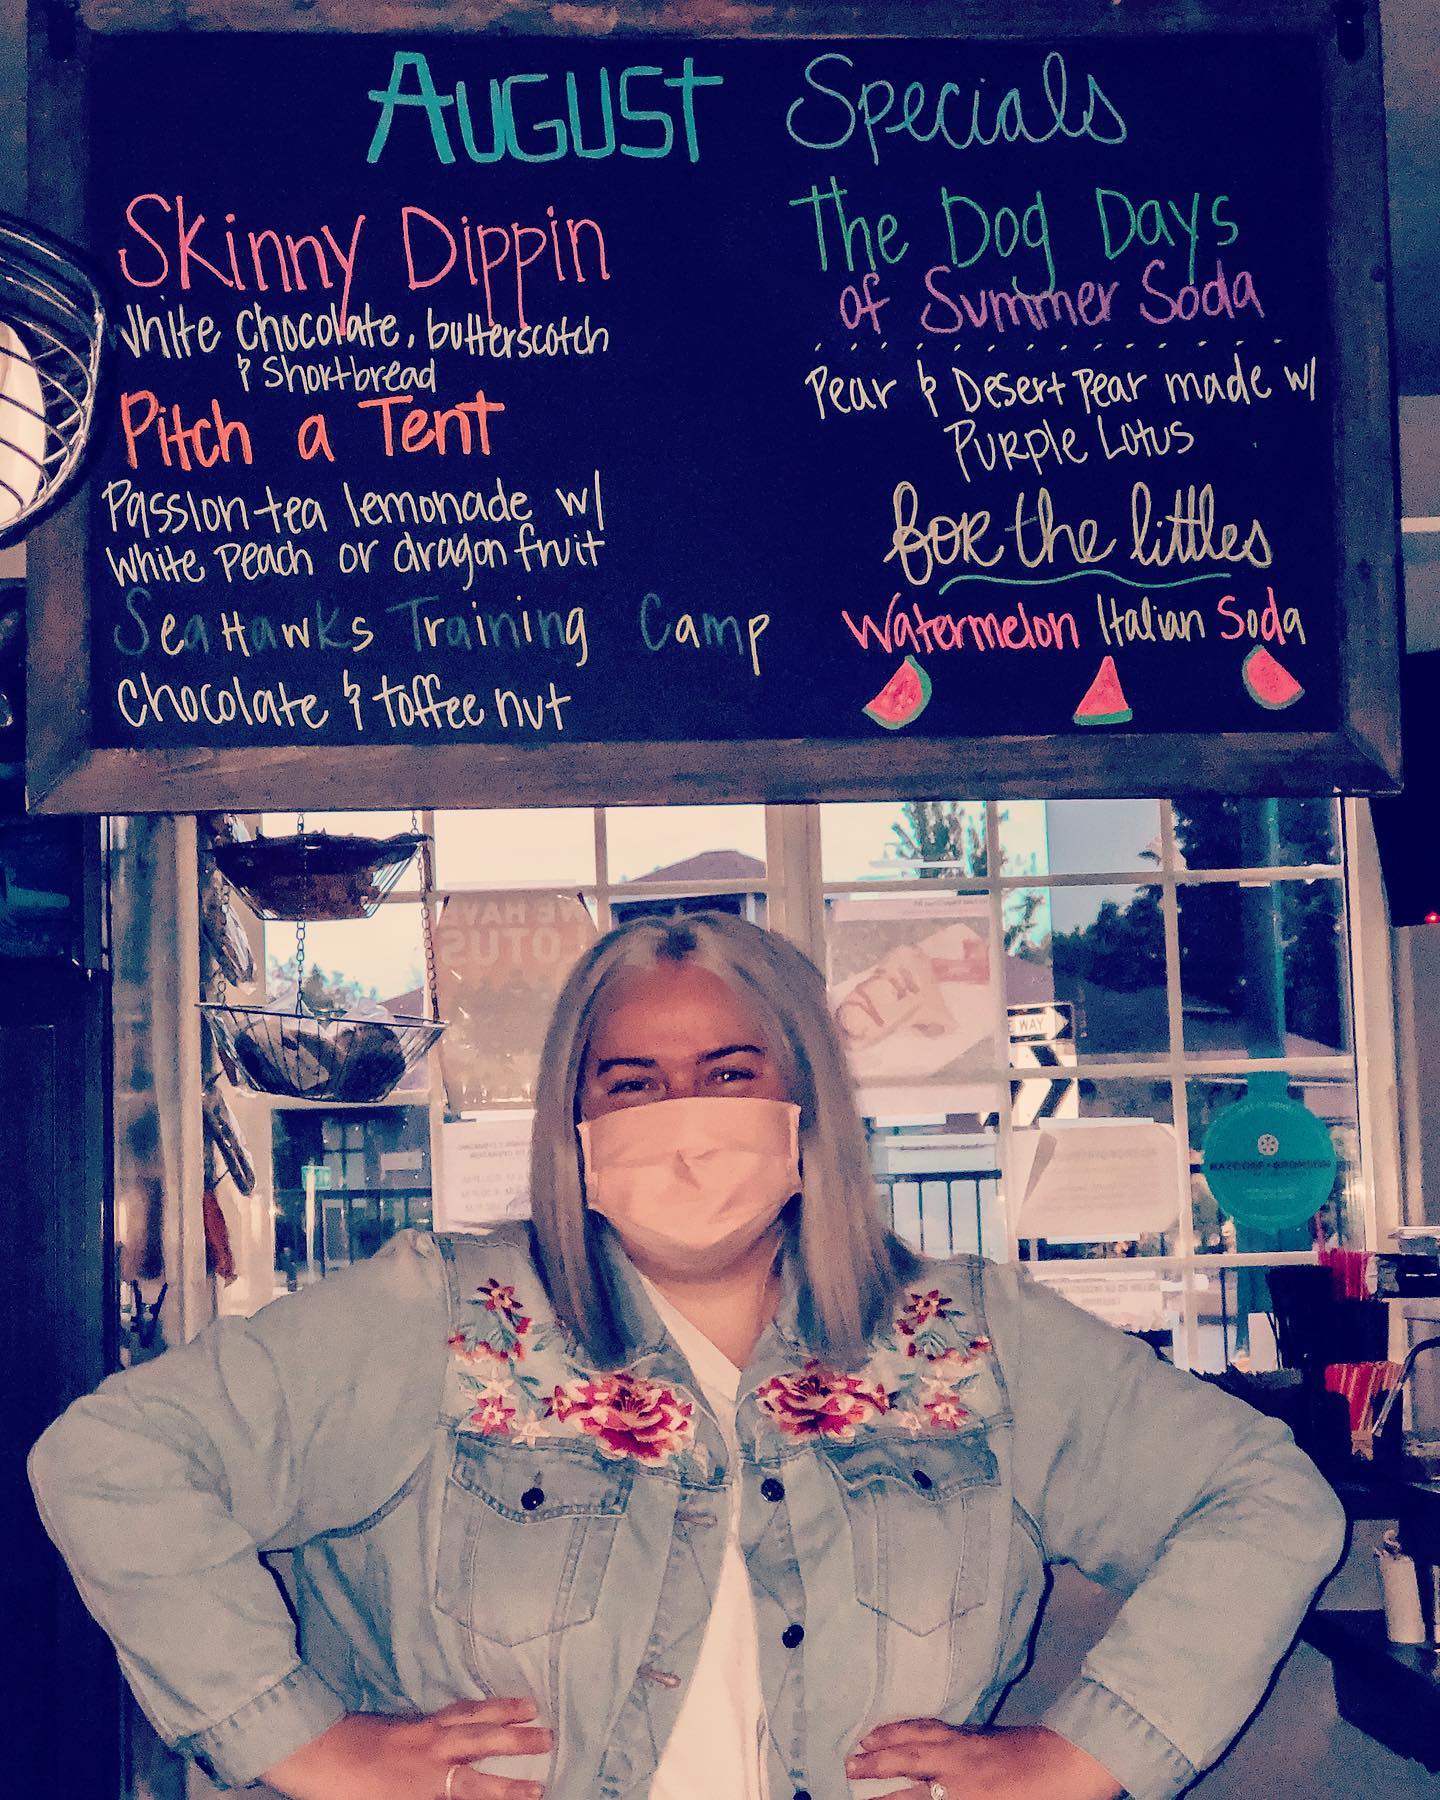 August Specials
Skinny Dippin
White Chocolate, butterscotch
& Shortbread
Pitch a Tent
Passion tea lemonade w/
White Peach or dragon fruit
SeaHawks Training Camp
Chocolate & toffee nut
The Dog Days
of Summer Soda
Pear & Desert Pear made w/
Purple Lotus
for the littles
Watermelon Italian Soda
WE HAVE
LOTUS
WAY